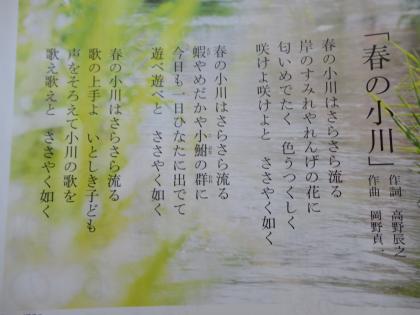 「春の小川」
作詞 高野辰之
作曲 岡野貞一
春の小川はさらさら流る
岸のすみれやれんげの花に
匂いめでたく 色うつくしく
咲けよ咲けよと ささやく如く
春の小川はさらさら流る
蝦やめだかや小鮒の群に
今日も一日ひなたに出でて
遊べ遊べと ささやく如く
春の小川はさらさら流る
歌の上手よ いとしき子ども
声をそろえて小川の歌を
歌え歌えと ささやく如く